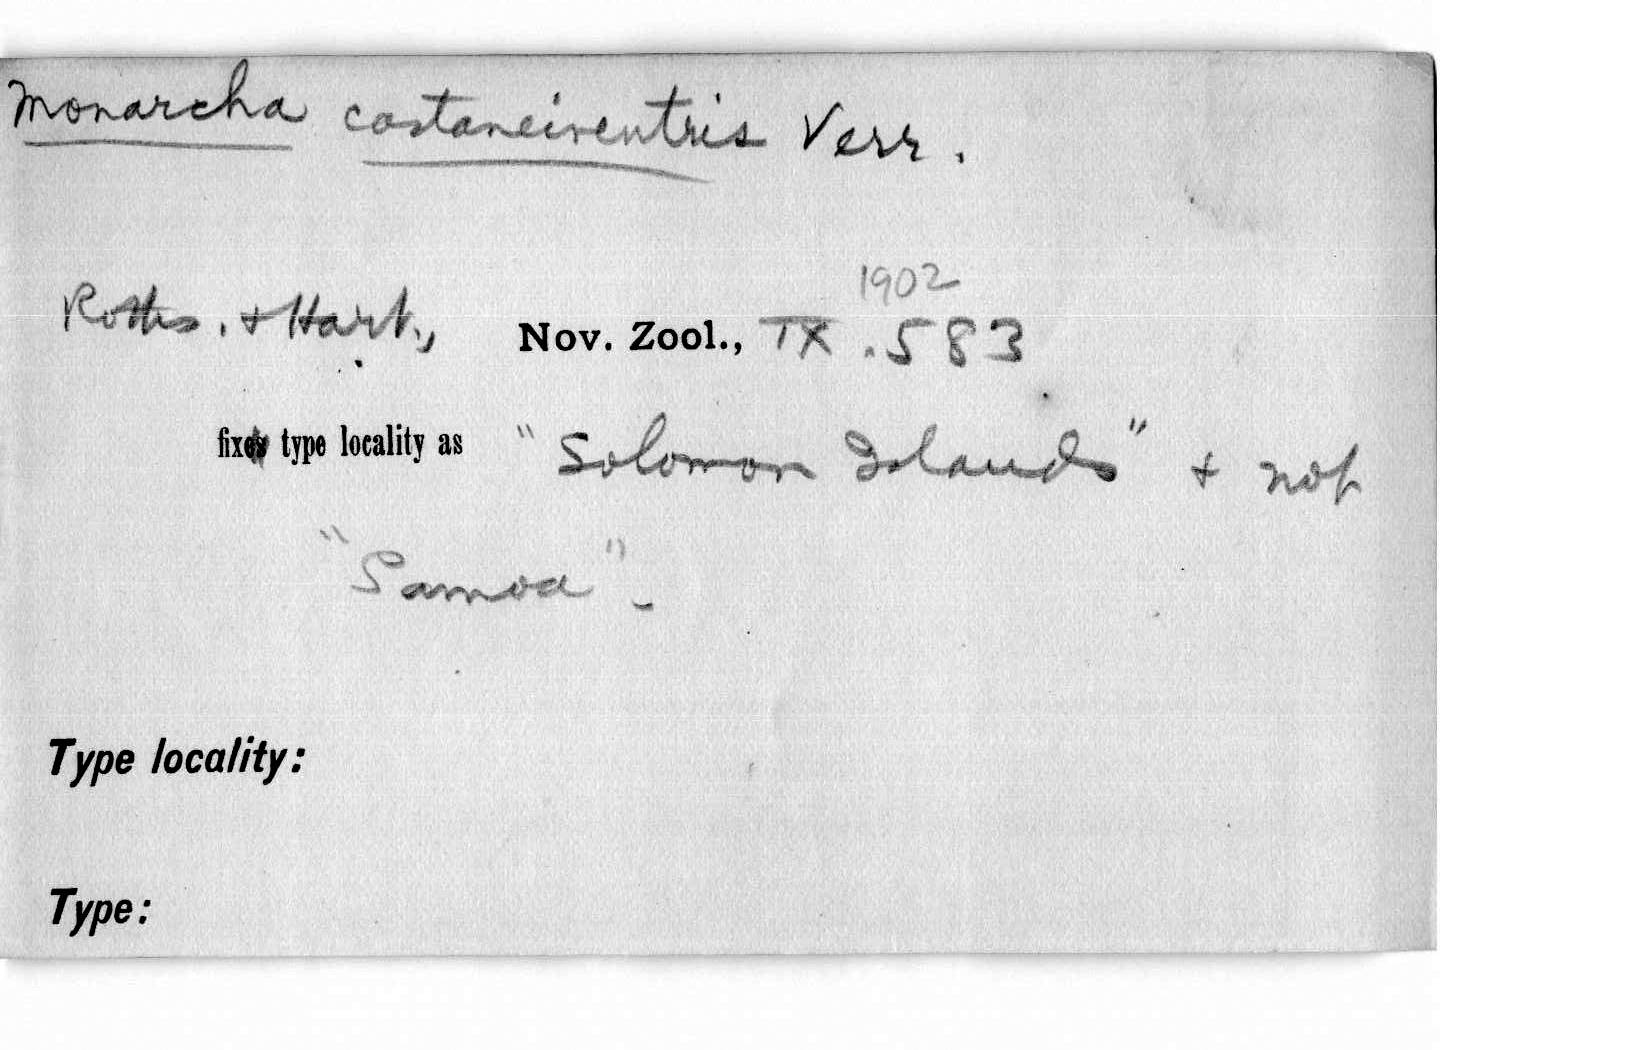 Monarcha castaneiventris Verr.
1902
Roths. + Hart., Nov. Zool., IX .583
fixes type locality as "Solomon Islands" + not
"Samoa".
Type locality:
Type: